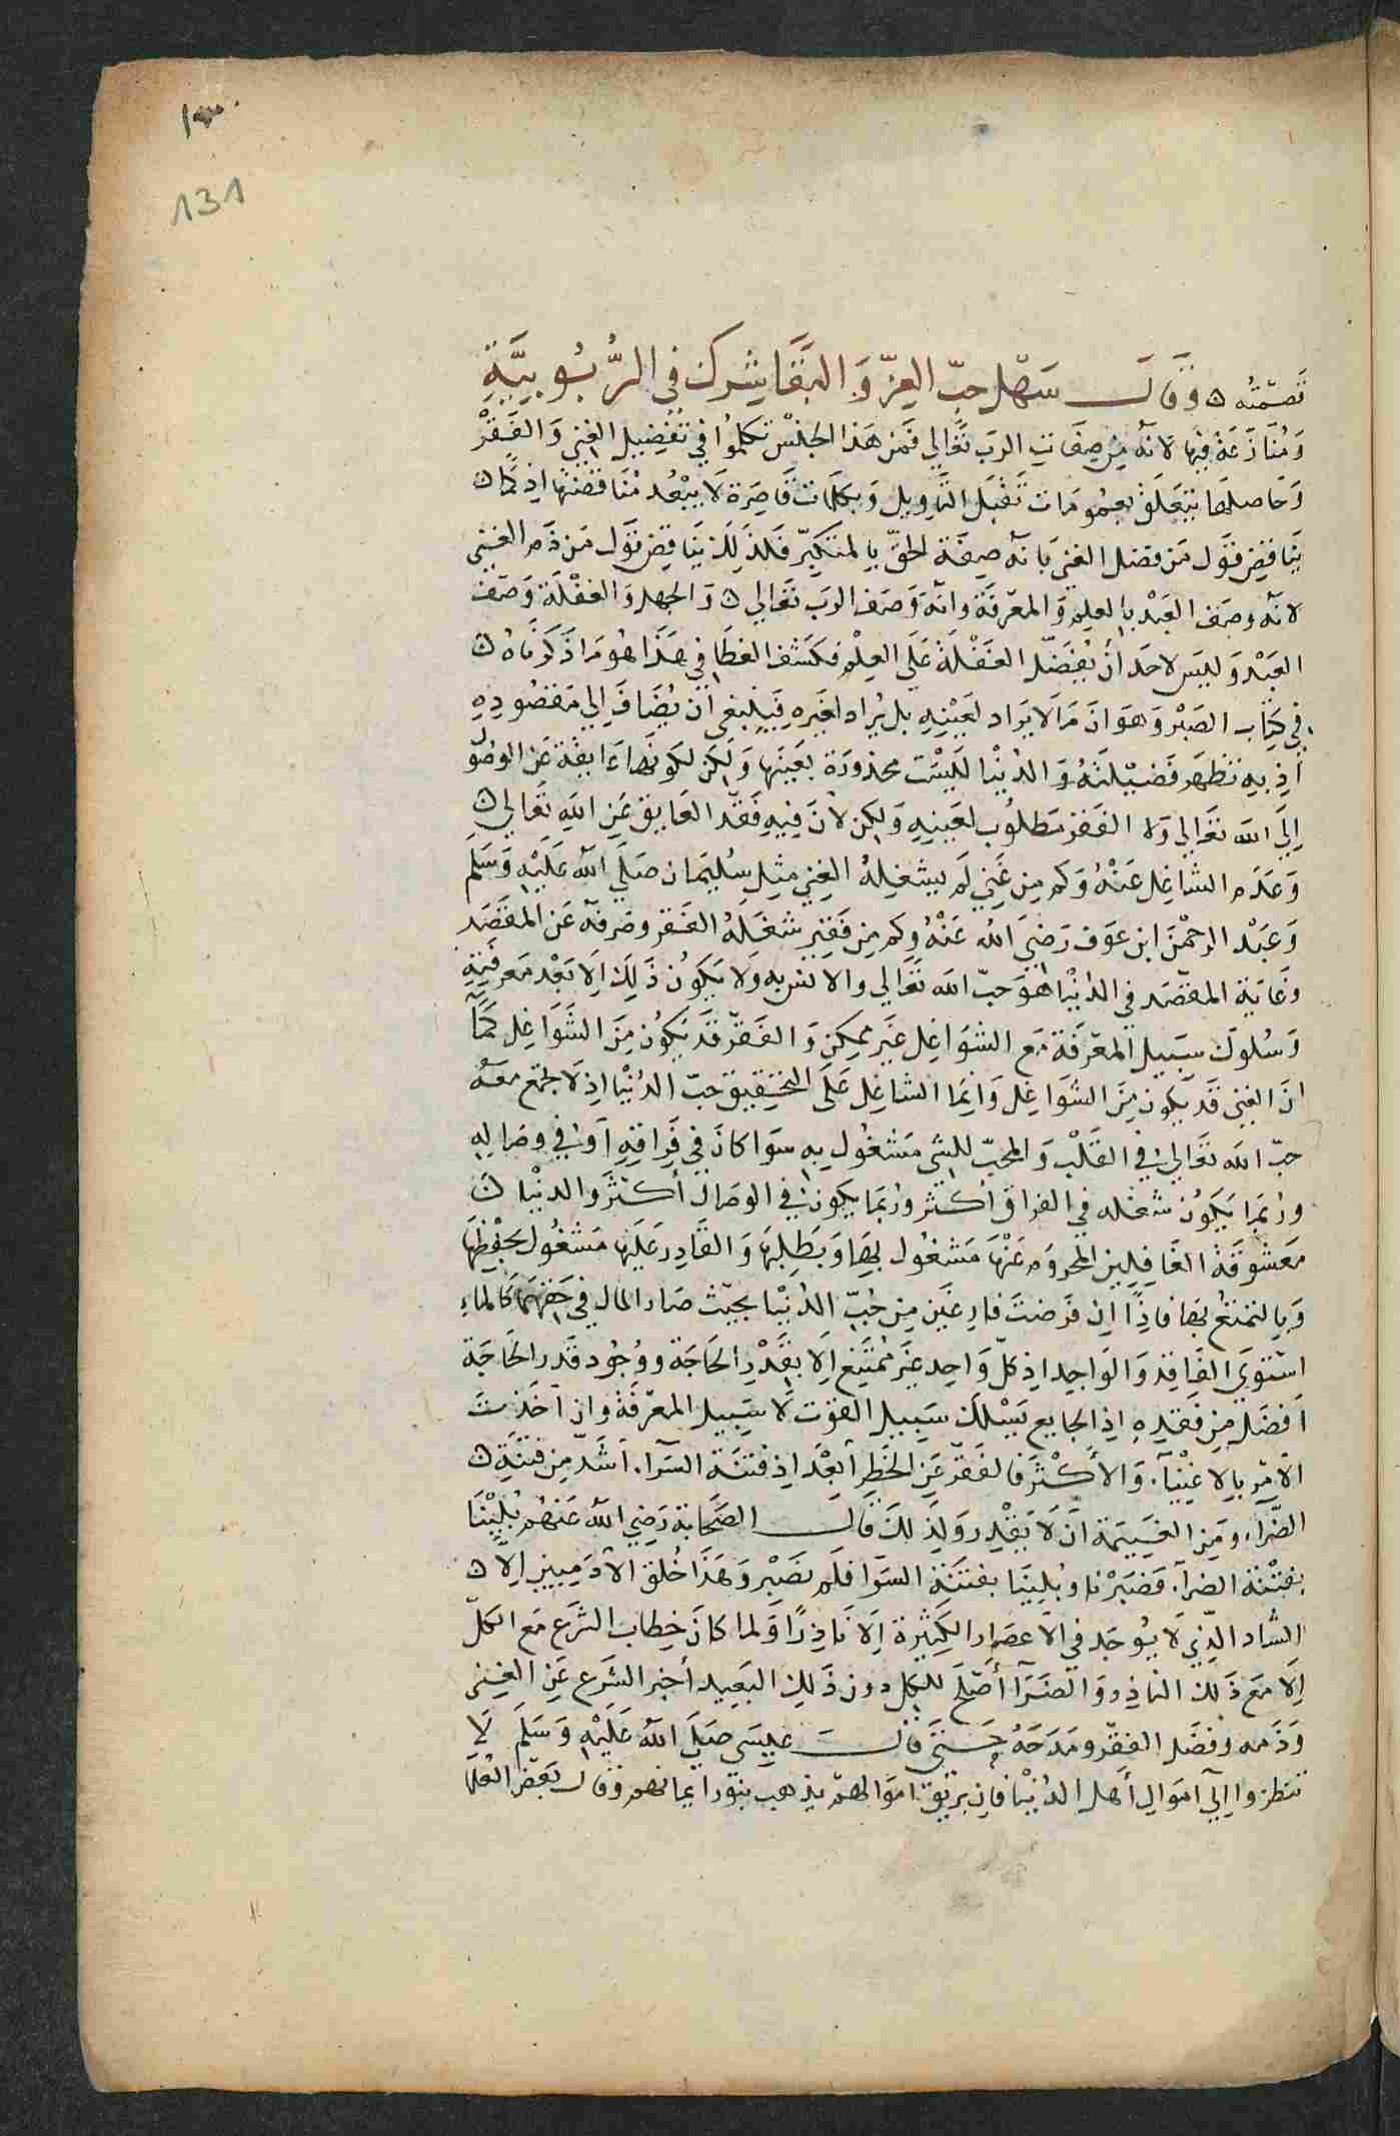 131
قصمته ۞ وقال سهل حب العز والبقا شرك في الربوبية
ومنازعة فيها لانه من صفات الرب تعالي فمن هذا الجنس تكلموا في تفضيل الغني والفقر
وحاصلها يتعلق بعمومات تقبل التاويل وبكلمات قاصرة لا يبعد مناقضتها اذ كما ان
يناقض قول من فضل الغني بانه صفة الحق بالمتكبر فلذلك يناقض قول من ذم الغني
لانه وصف العبد بالعلم والمعرفة وانه وصف الرب تعالي ۞ والجهل والغفلة وصف
العبد وليس لاحد أن يفضل الغفلة علي العلم فكشف الغطا في هذا هو ما ذكرناه ۞
في كتاب الصبر وهو ان ما لا يراد لعينه بل يراد لغيره فينبغي أن يضاف الي مقصوده
أذ به تظهر فضيلته والدنيا ليست محذورة بعينها ولكن لكونها عايقة عن الوصول
إلي الله تعالي ولا الفقر مطلوب لعينه ولكن لأن فيه فقد العايق عن الله تعالي ۞
وعدم الشاغل عنه وكم من غني لم يشغله الغني مثل سليمان صلي الله عليه وسلم
وعبد الرحمن ابن عوف رضي الله عنه وكم من فقير شغله الفقر وصرفه عن المقصد
وغاية المقصد في الدنيا هو حب الله تعالي والانس به ولا يكون ذلك إلا بعد معرفته
وسلوك سبيل المعرفة مع الشواغل غير ممكن والفقر قد يكون من الشواغل كما
ان الغني قد يكون من الشواغل وانما الشاغل علي التحقيق حب الدنيا اذ لا يجتمع معه
حب الله تعالي في القلب والمحب للشي مشغول به سوا كان في فراقه أو في وصاله
وربما يكون شغله في الفراق أكثر وربما يكون في الوصال أكثر والدنيا ۞
معشوقة الغافلين المحروم عنها مشغول بها وبطلبها والقادر عليها مشغول بحفظها
وبالتمتع بها فاذًا إن فرضت فارغين من حب الدنيا بحيث صار المال في حقهما كالماء
استوي الفاقد والواجد اذ كل واحد غير متمتع إلا بقدر الحاجة ووجود قدر الحاجة
أفضل من فقده اذ الجايع يسلك سبيل الموت لا سبيل المعرفة وان أخذت
الأمر بالاغنيآ والأكثر فالفقر عن الخطر أبعد اذ فتنة السرآ أشد من فتنة ۞
الضرآ ومن العصمة ان لا يقدر ولذلك قال الصحابة رضي الله عنهم بلينا
بفتنة الضرآ فصبرنا وبلينا بفتنة السرا فلم نصبر وهذا خلق الآدميين الا ۞
الشاذ الذي لا يوجد في الاعصار الكثيرة إلا نادرًا ولما كان خطاب الشرع مع الكل
إلا مع ذلك النادر والضرآ أصلح للكل دون ذلك البعيد أخبر الشرع عن الغني
وذمه وفضل الفقر ومدحه حتي قال عيسي صلي الله عليه وسلم لا
تنظروا إلي اموال أهل الدنيا فإن بريق اموالهم يذهب بنور ايمانهم وقال بعض العلما